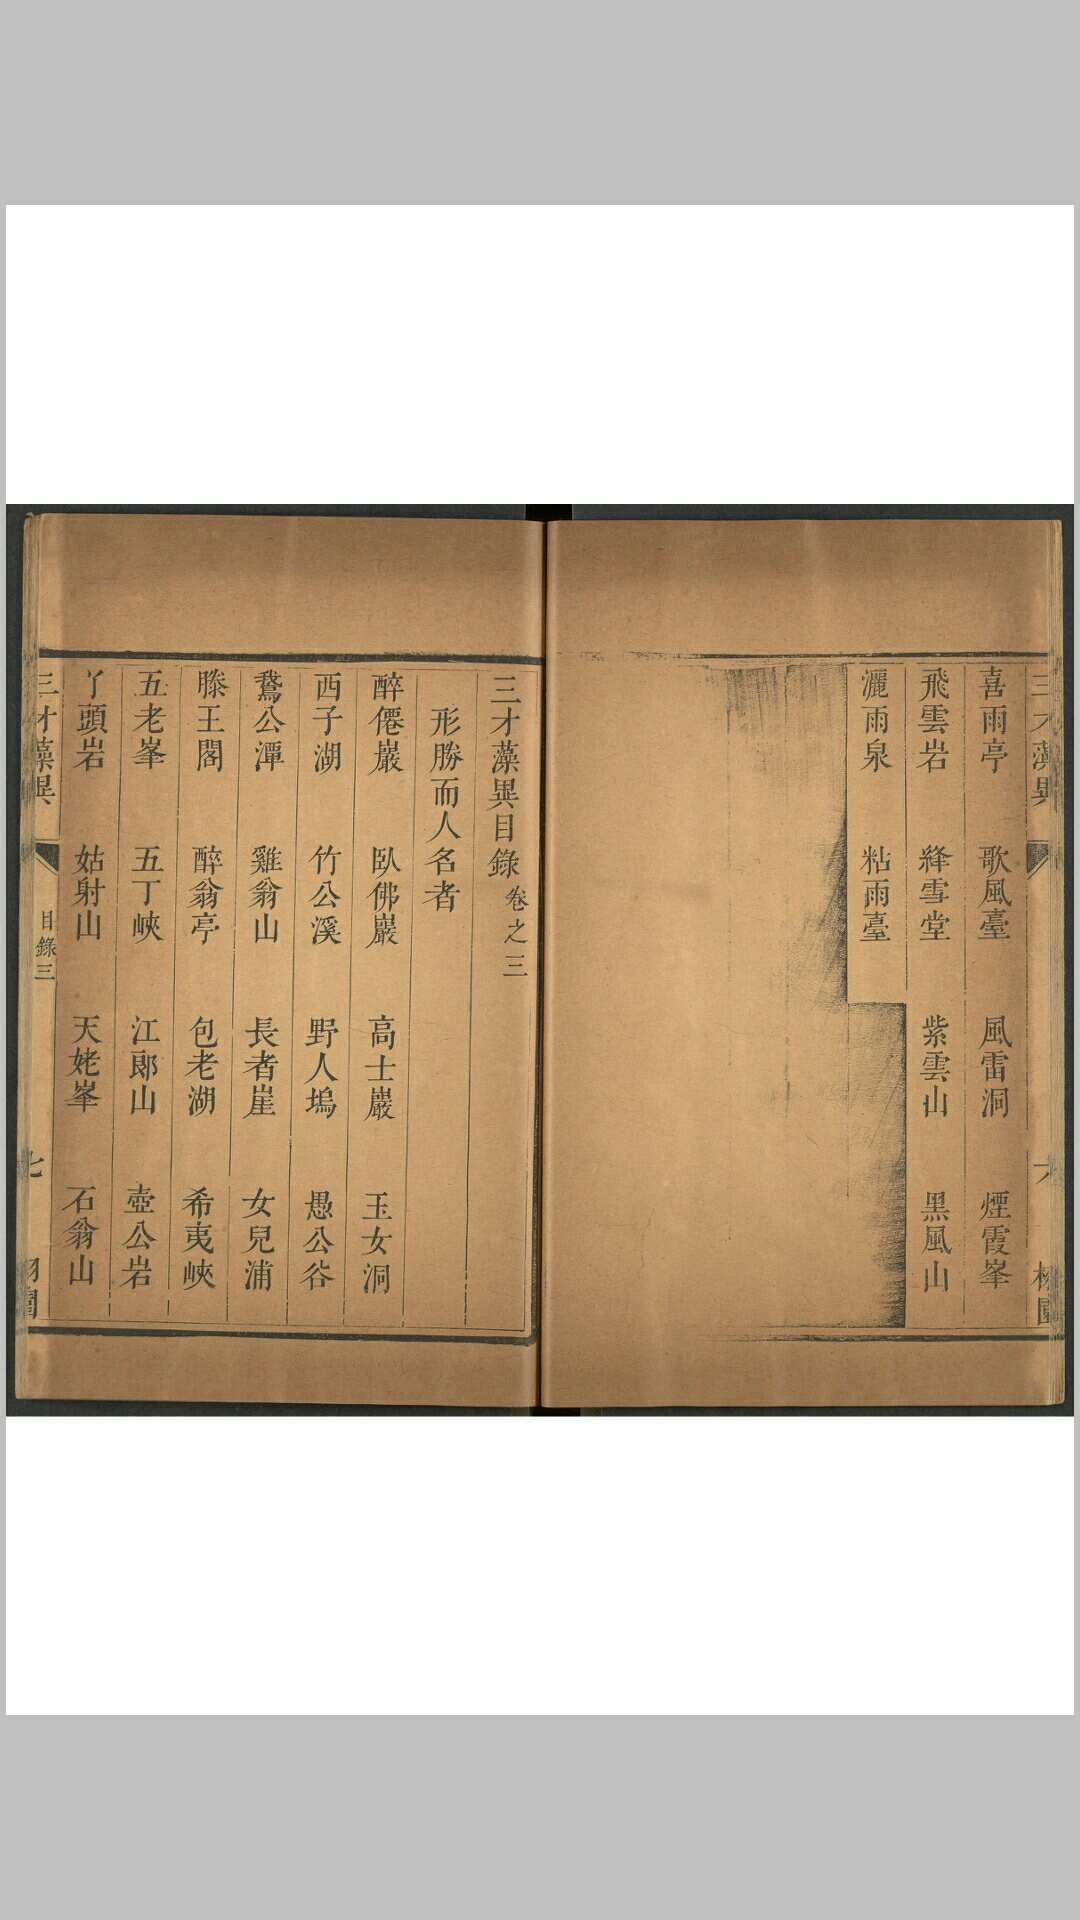 喜雨亭 歌風臺 風雷洞 煙霞峯
飛雲岩 絳雪堂 紫雲山 黑風山
灑雨泉 粘雨臺
三才藻異目錄 卷之三
形勝而人名者
醉僊巖 臥佛巖 高士巖 玉女洞
西子湖 竹公溪 野人塢 愚公谷
鵞公潭 雞翁山 長者崖 女兒浦
滕王閣 醉翁亭 包老湖 希夷峽
五老峯 五丁峽 江郎山 壺公岩
丫頭岩 姑射山 天姥峯 石翁山
三才藻異 目錄三 七